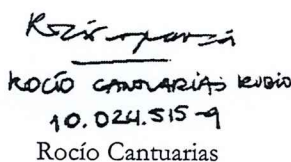 ROCÍO CANTUARIAS RUBIO
10.024.515-9
Rocío Cantuarias